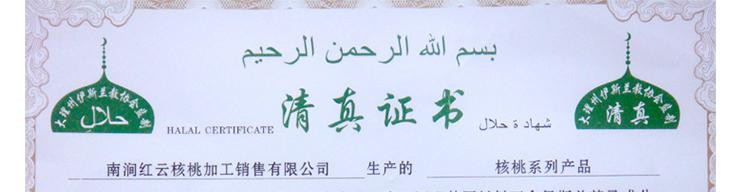 بسم الله الرحمن الرحيم
大理州伊斯兰教协会监制
حلال
HALAL CERTIFICATE
清真证书
شهادة حلال
大理州伊斯兰教协会监制
清真
南涧红云核桃加工销售有限公司 生产的 核桃系列产品